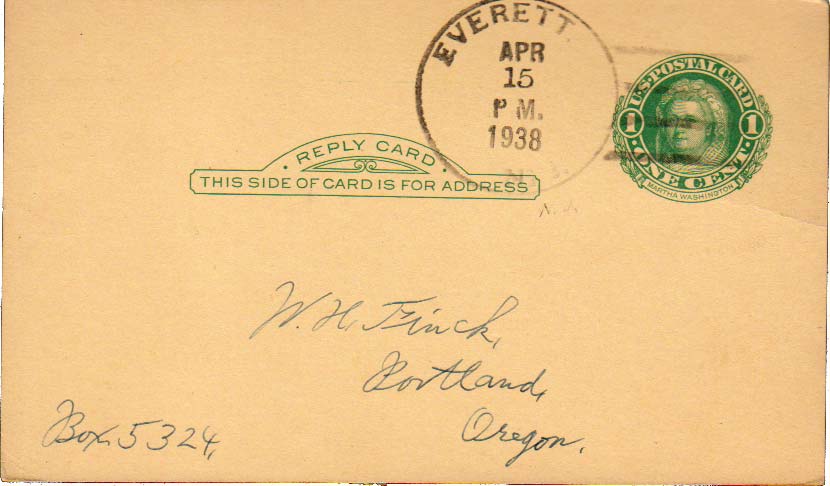 EVERETT.
APR
15
P M.
1938
U.S. POSTAL CARD
1 1
ONE CENT
MARTHA WASHINGTON
REPLY CARD
THIS SIDE OF CARD IS FOR ADDRESS
W. H. Finck,
Portland,
Oregon.
Box 5324,